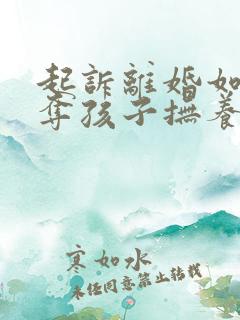 起訴離婚如
奪孩子撫養
寒如水
未经同意禁止转载